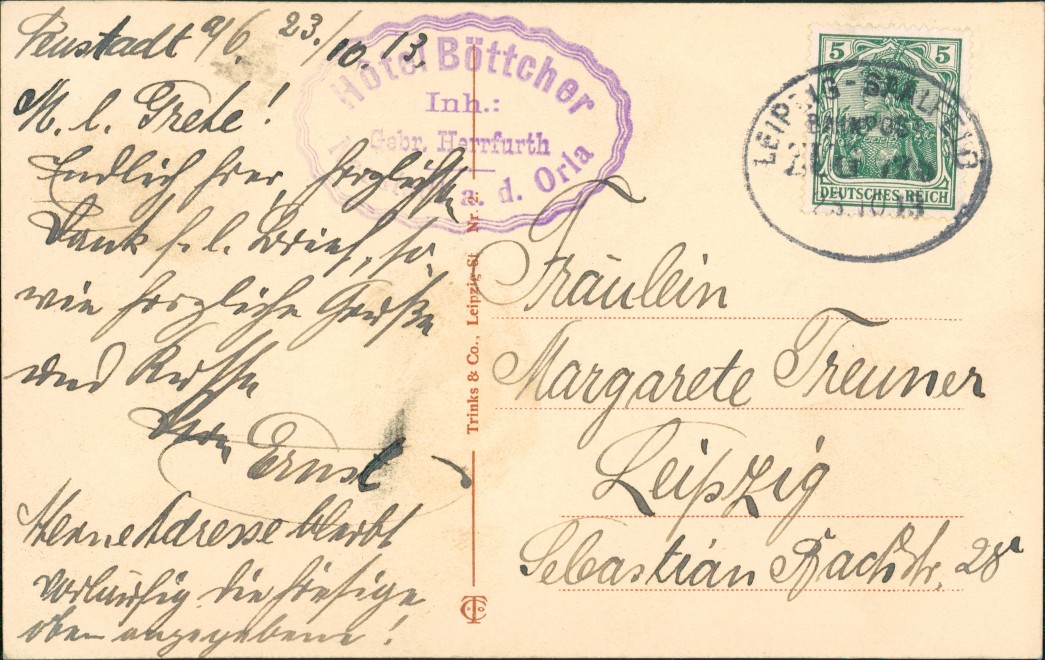 Neustadt a/O. 23./10.13.
M. l. Grete!
Endlich hier, herzlichst
Dank f. l. Brief, so-
wie herzliche Grüße
und Küsse
Dein Ernst
Meine Adresse bleibt
vorläufig die hiesige
oben angegebene!
Hotel Böttcher
Inh.:
Gebr. Herrfurth
a. d. Orla
Trinks & Co., Leipzig-St. Nr. 2.
5 5
DEUTSCHES REICH
LEIPZIG-SAALFELD
BAHNPOST
ZUG
23.10.13
Fräulein
Margarete Treuner
Leipzig
Sebastian Bachstr. 28